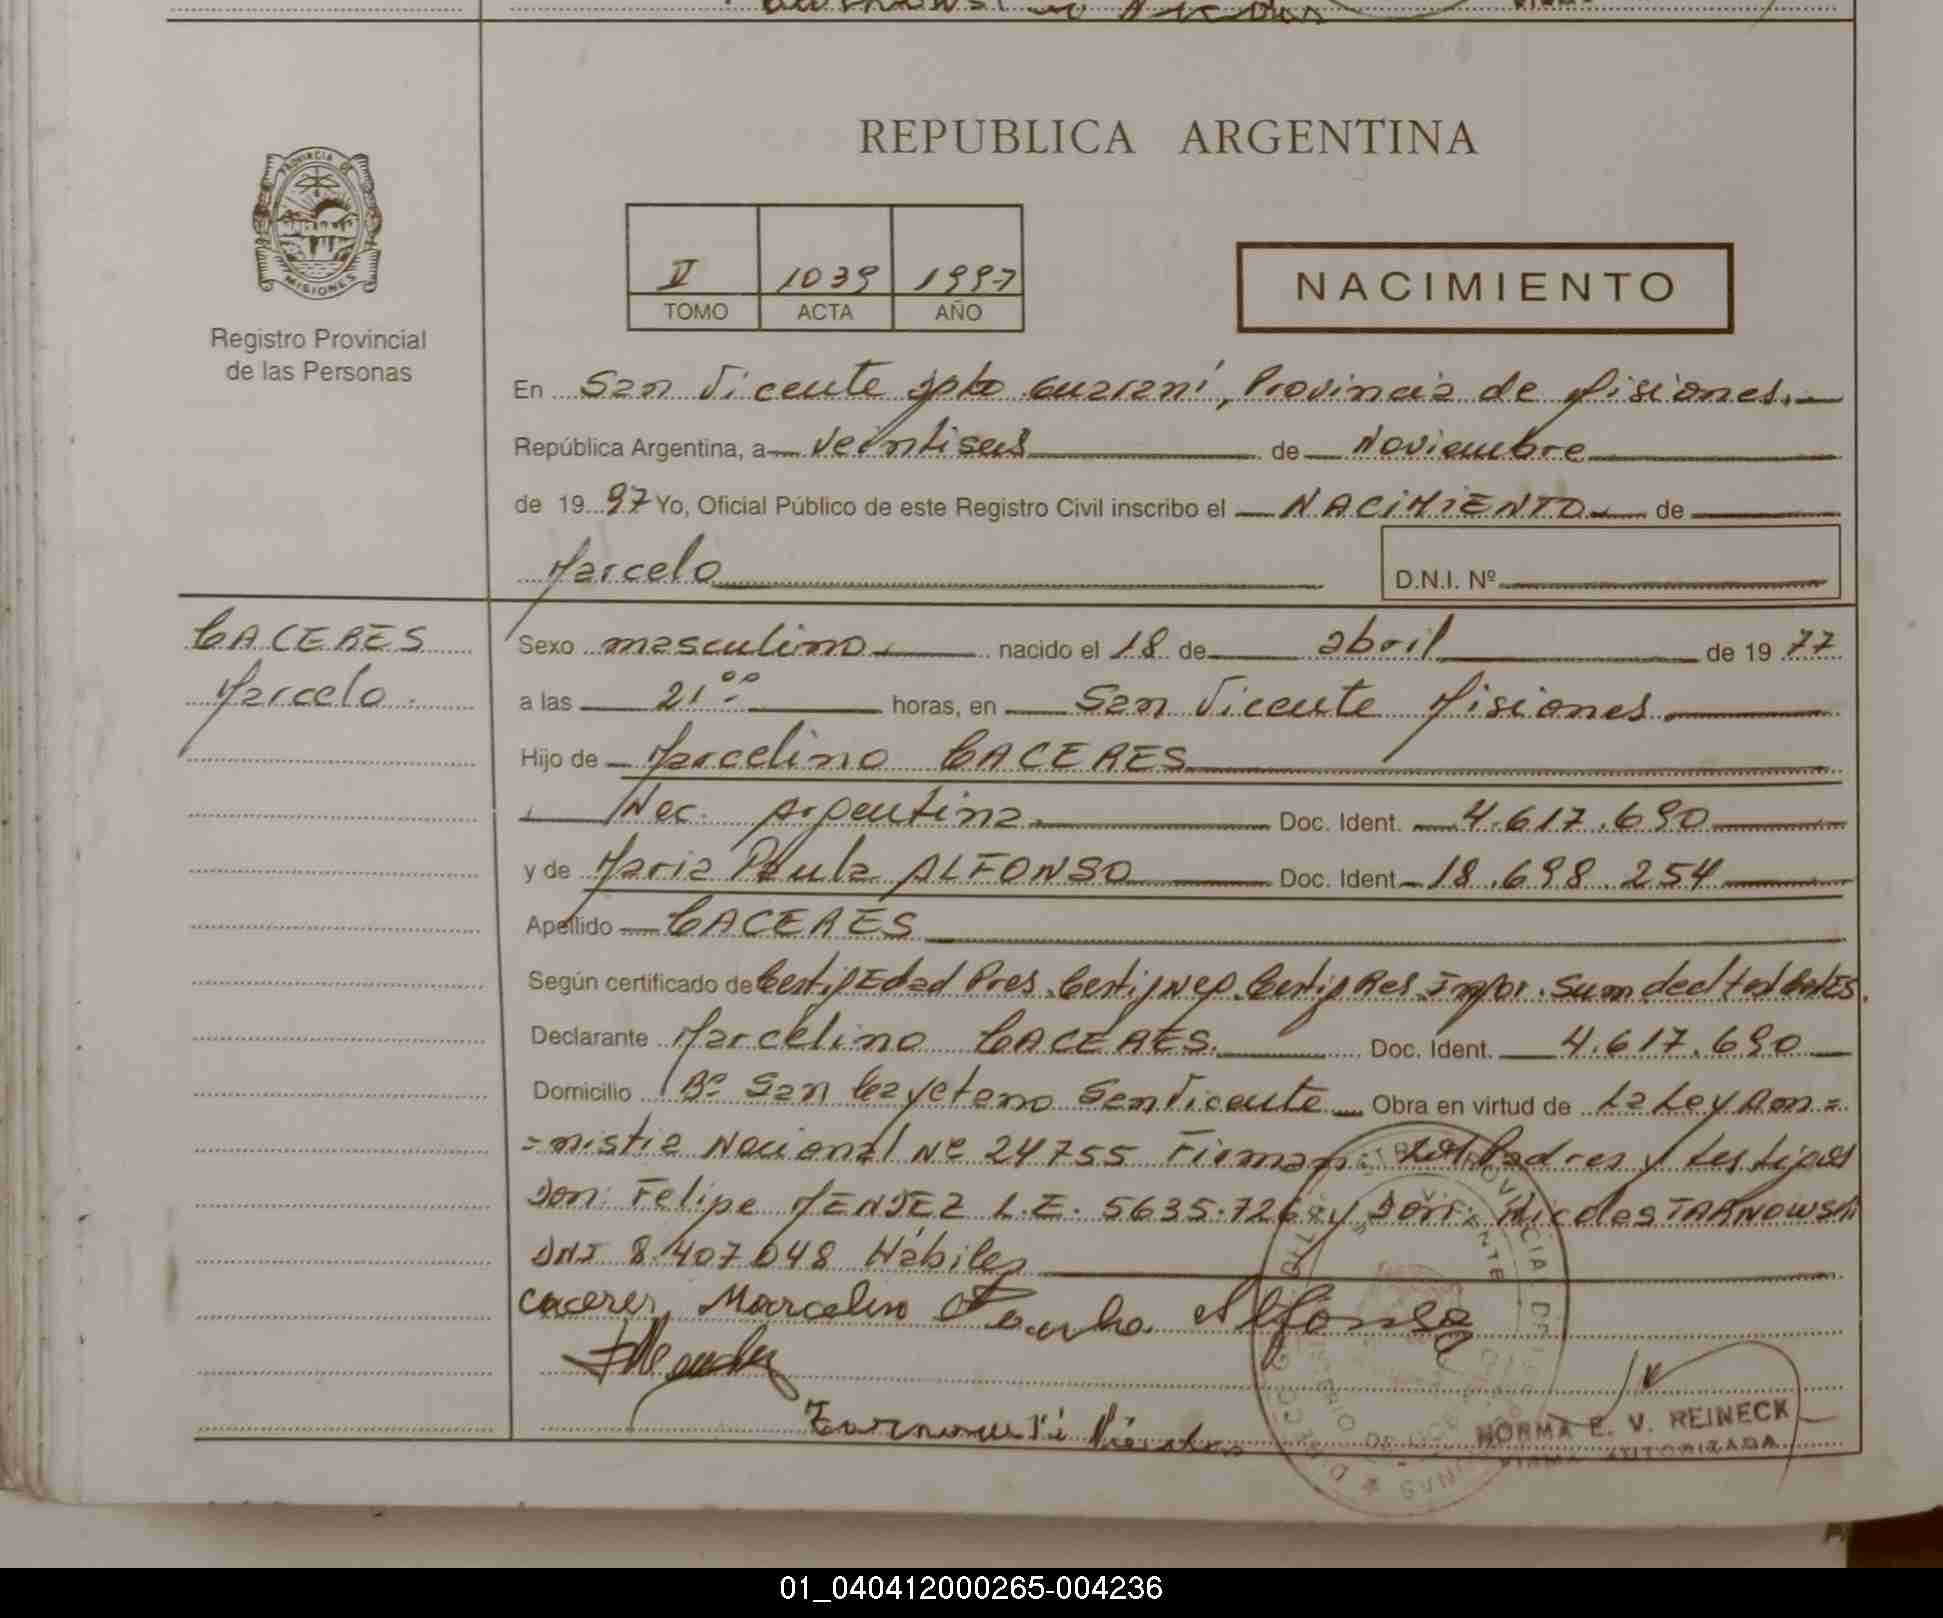 REPUBLICA ARGENTINA
PROVINCIA DE
MISIONES
Registro Provincial
de las Personas
V 1039 1997
TOMO ACTA AÑO
NACIMIENTO
En San Vicente Dpto Guaraní, Provincia de Misiones.
República Argentina, a Veintiseis de Noviembre
de 19 97 Yo, Oficial Público de este Registro Civil inscribo el NACIMIENTO de
Marcelo D.N.I. Nº
CACERES
Marcelo.
Sexo masculino nacido el 18 de abril de 19 77
a las 21 00 horas, en San Vicente Misiones
Hijo de Marcelino CACERES
Nac. Argentina. Doc. Ident. 4.617.690
y de Maria Paula ALFONSO Doc. Ident 18.698.254
Apellido CACERES
Según certificado de Certif Edad Pres. Certif Neg. Certif Res. Infor. Sum
Declarante Marcelino CACERES. Doc. Ident. 4.617.690
Domicilio Bº San Cayetano San Vicente Obra en virtud de La Ley Am=
=nistia Nacional Nº 24755 Firman: Los Padres y testigos
Don: Felipe MENDEZ L.E. 5635.726 y Don: Nicolas TARNOWSKI
DNI 8.407.048 Hábiles
Caceres, Marcelino Paula Alfonso
FMendez
Tarnowski Nicolas
NORMA E. V. REINECK
FIRMA AUTORIZADA
01_040412000265-004236